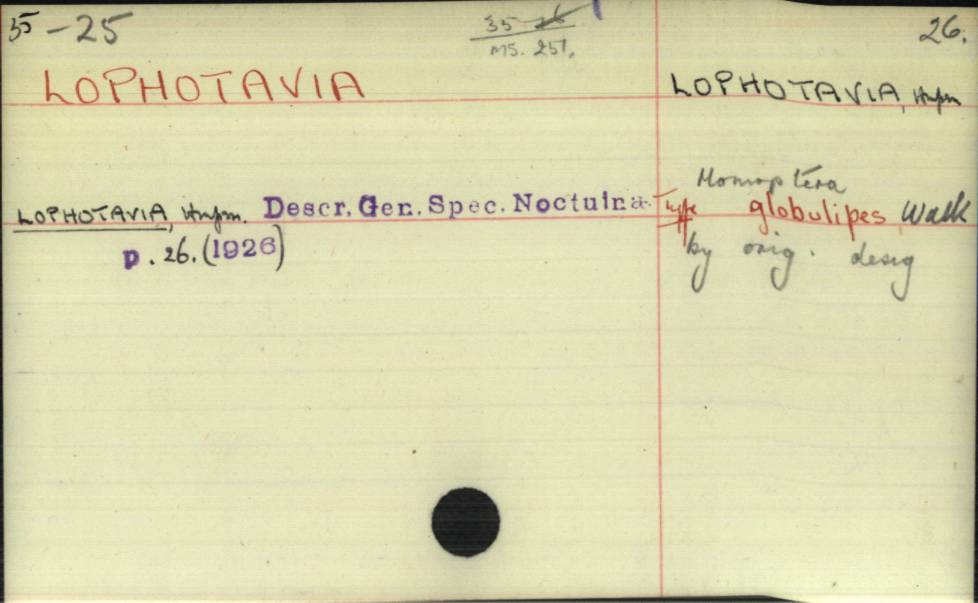 35-25
35-26
ms. 251.
26.
LOPHOTAVIA
LOPHOTAVIA, Hmpsn
LOPHOTAVIA, Hmpsn. Descr. Gen. Spec. Noctuinæ
p. 26. (1926)
Homoptera
Type globulipes Walk
by orig. desig